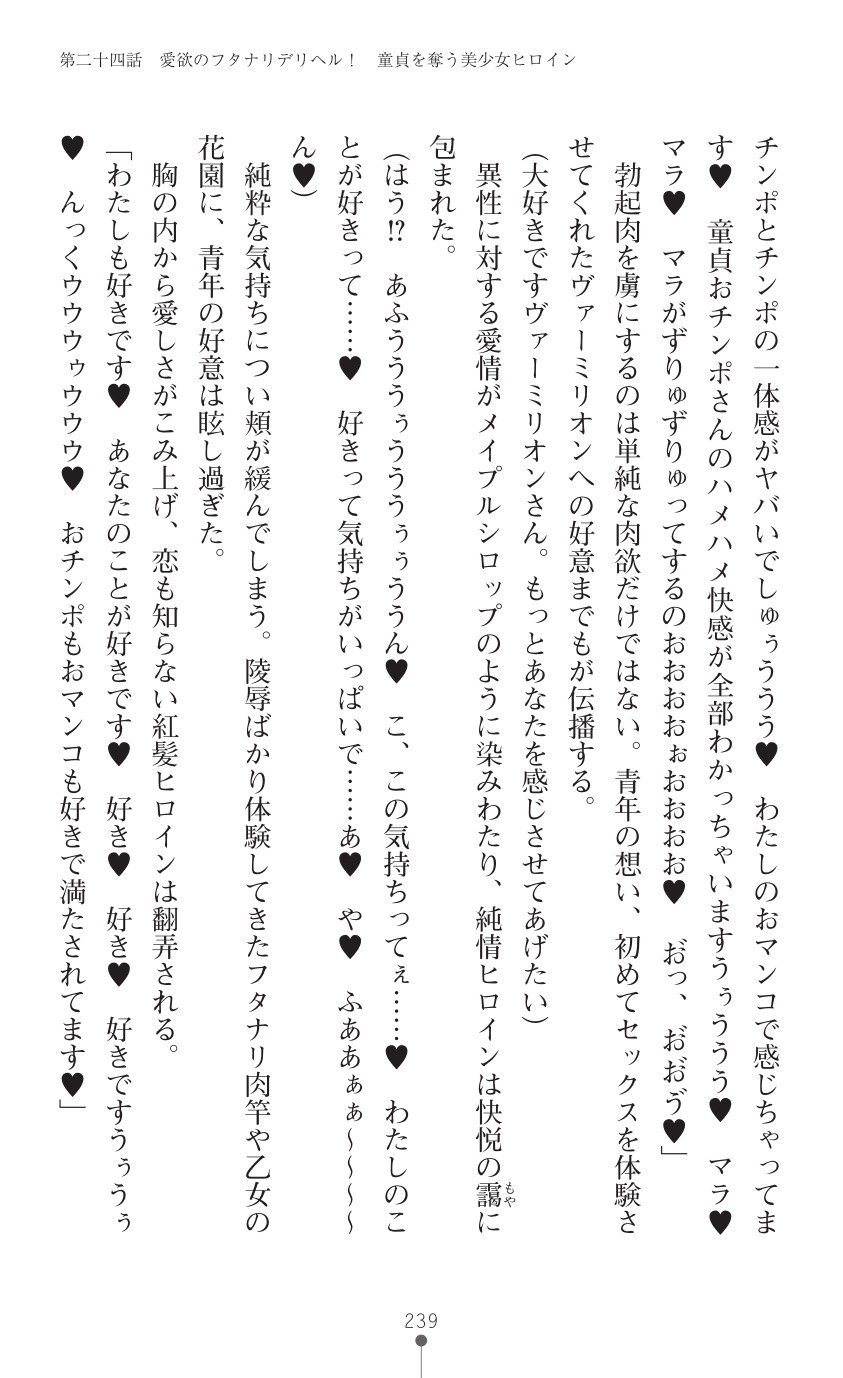 第二十四話　愛欲のフタナリデリヘル！　童貞を奪う美少女ヒロイン
チンポとチンポの一体感がヤバいでしゅぅううう♥　わたしのおマンコで感じちゃってま
す♥　童貞おチンポさんのハメハメ快感が全部わかっちゃいますうぅううう♥　マラ♥
マラ♥　マラがずりゅずりゅってするのおおおおぉおおおお♥　お゛っ、お゛お゛ゔ♥」
　勃起肉を虜にするのは単純な肉欲だけではない。青年の想い、初めてセックスを体験さ
せてくれたヴァーミリオンへの好意までもが伝播する。
（大好きですヴァーミリオンさん。もっとあなたを感じさせてあげたい）
　異性に対する愛情がメイプルシロップのように染みわたり、純情ヒロインは快悦の靄もやに
包まれた。
（はう!?　あふうううぅうううぅぅううん♥　こ、この気持ちってぇ……♥　わたしのこ
とが好きって……♥　好きって気持ちがいっぱいで……あ♥　や♥　ふああぁぁ～～～～
ん♥）
　純粋な気持ちについ頬が緩んでしまう。陵辱ばかり体験してきたフタナリ肉竿や乙女の
花園に、青年の好意は眩し過ぎた。
　胸の内から愛しさがこみ上げ、恋も知らない紅髪ヒロインは翻弄される。
「わたしも好きです♥　あなたのことが好きです♥　好き♥　好き♥　好きですうぅうぅ
♥　んっくウウウゥウウウ♥　おチンポもおマンコも好きで満たされてます♥」
239